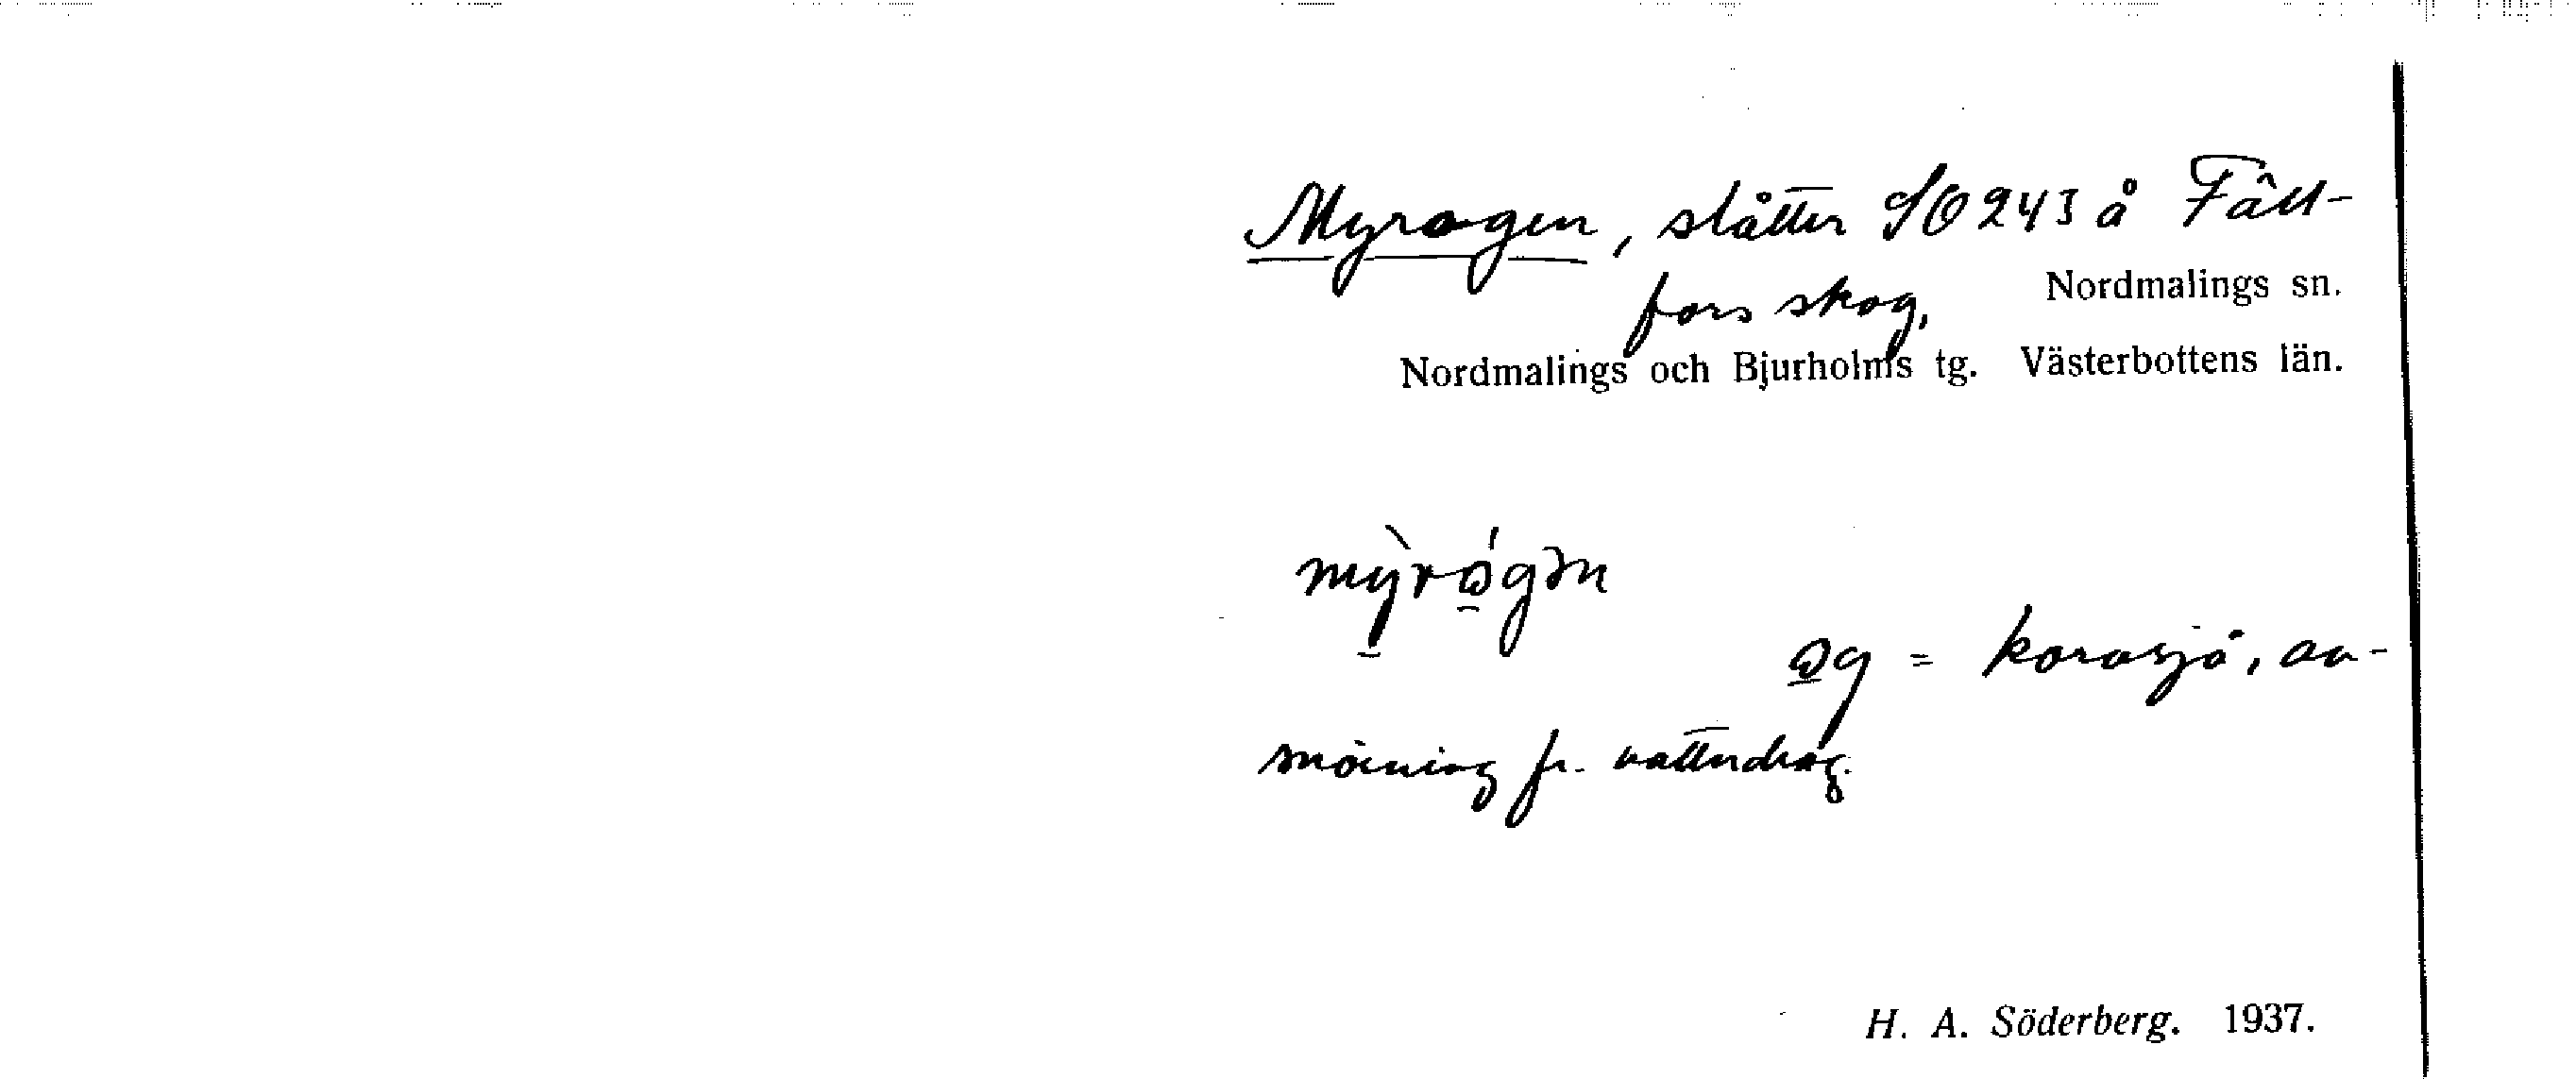 Myrogen, slåtter SO 243 å Fäll-
fors skog, Nordmalings sn.
Nordmalings och Bjurholms tg. Västerbottens län.
= korvsjö, av-
snörning fr. vattendrag.
H. A. Söderberg. 1937.